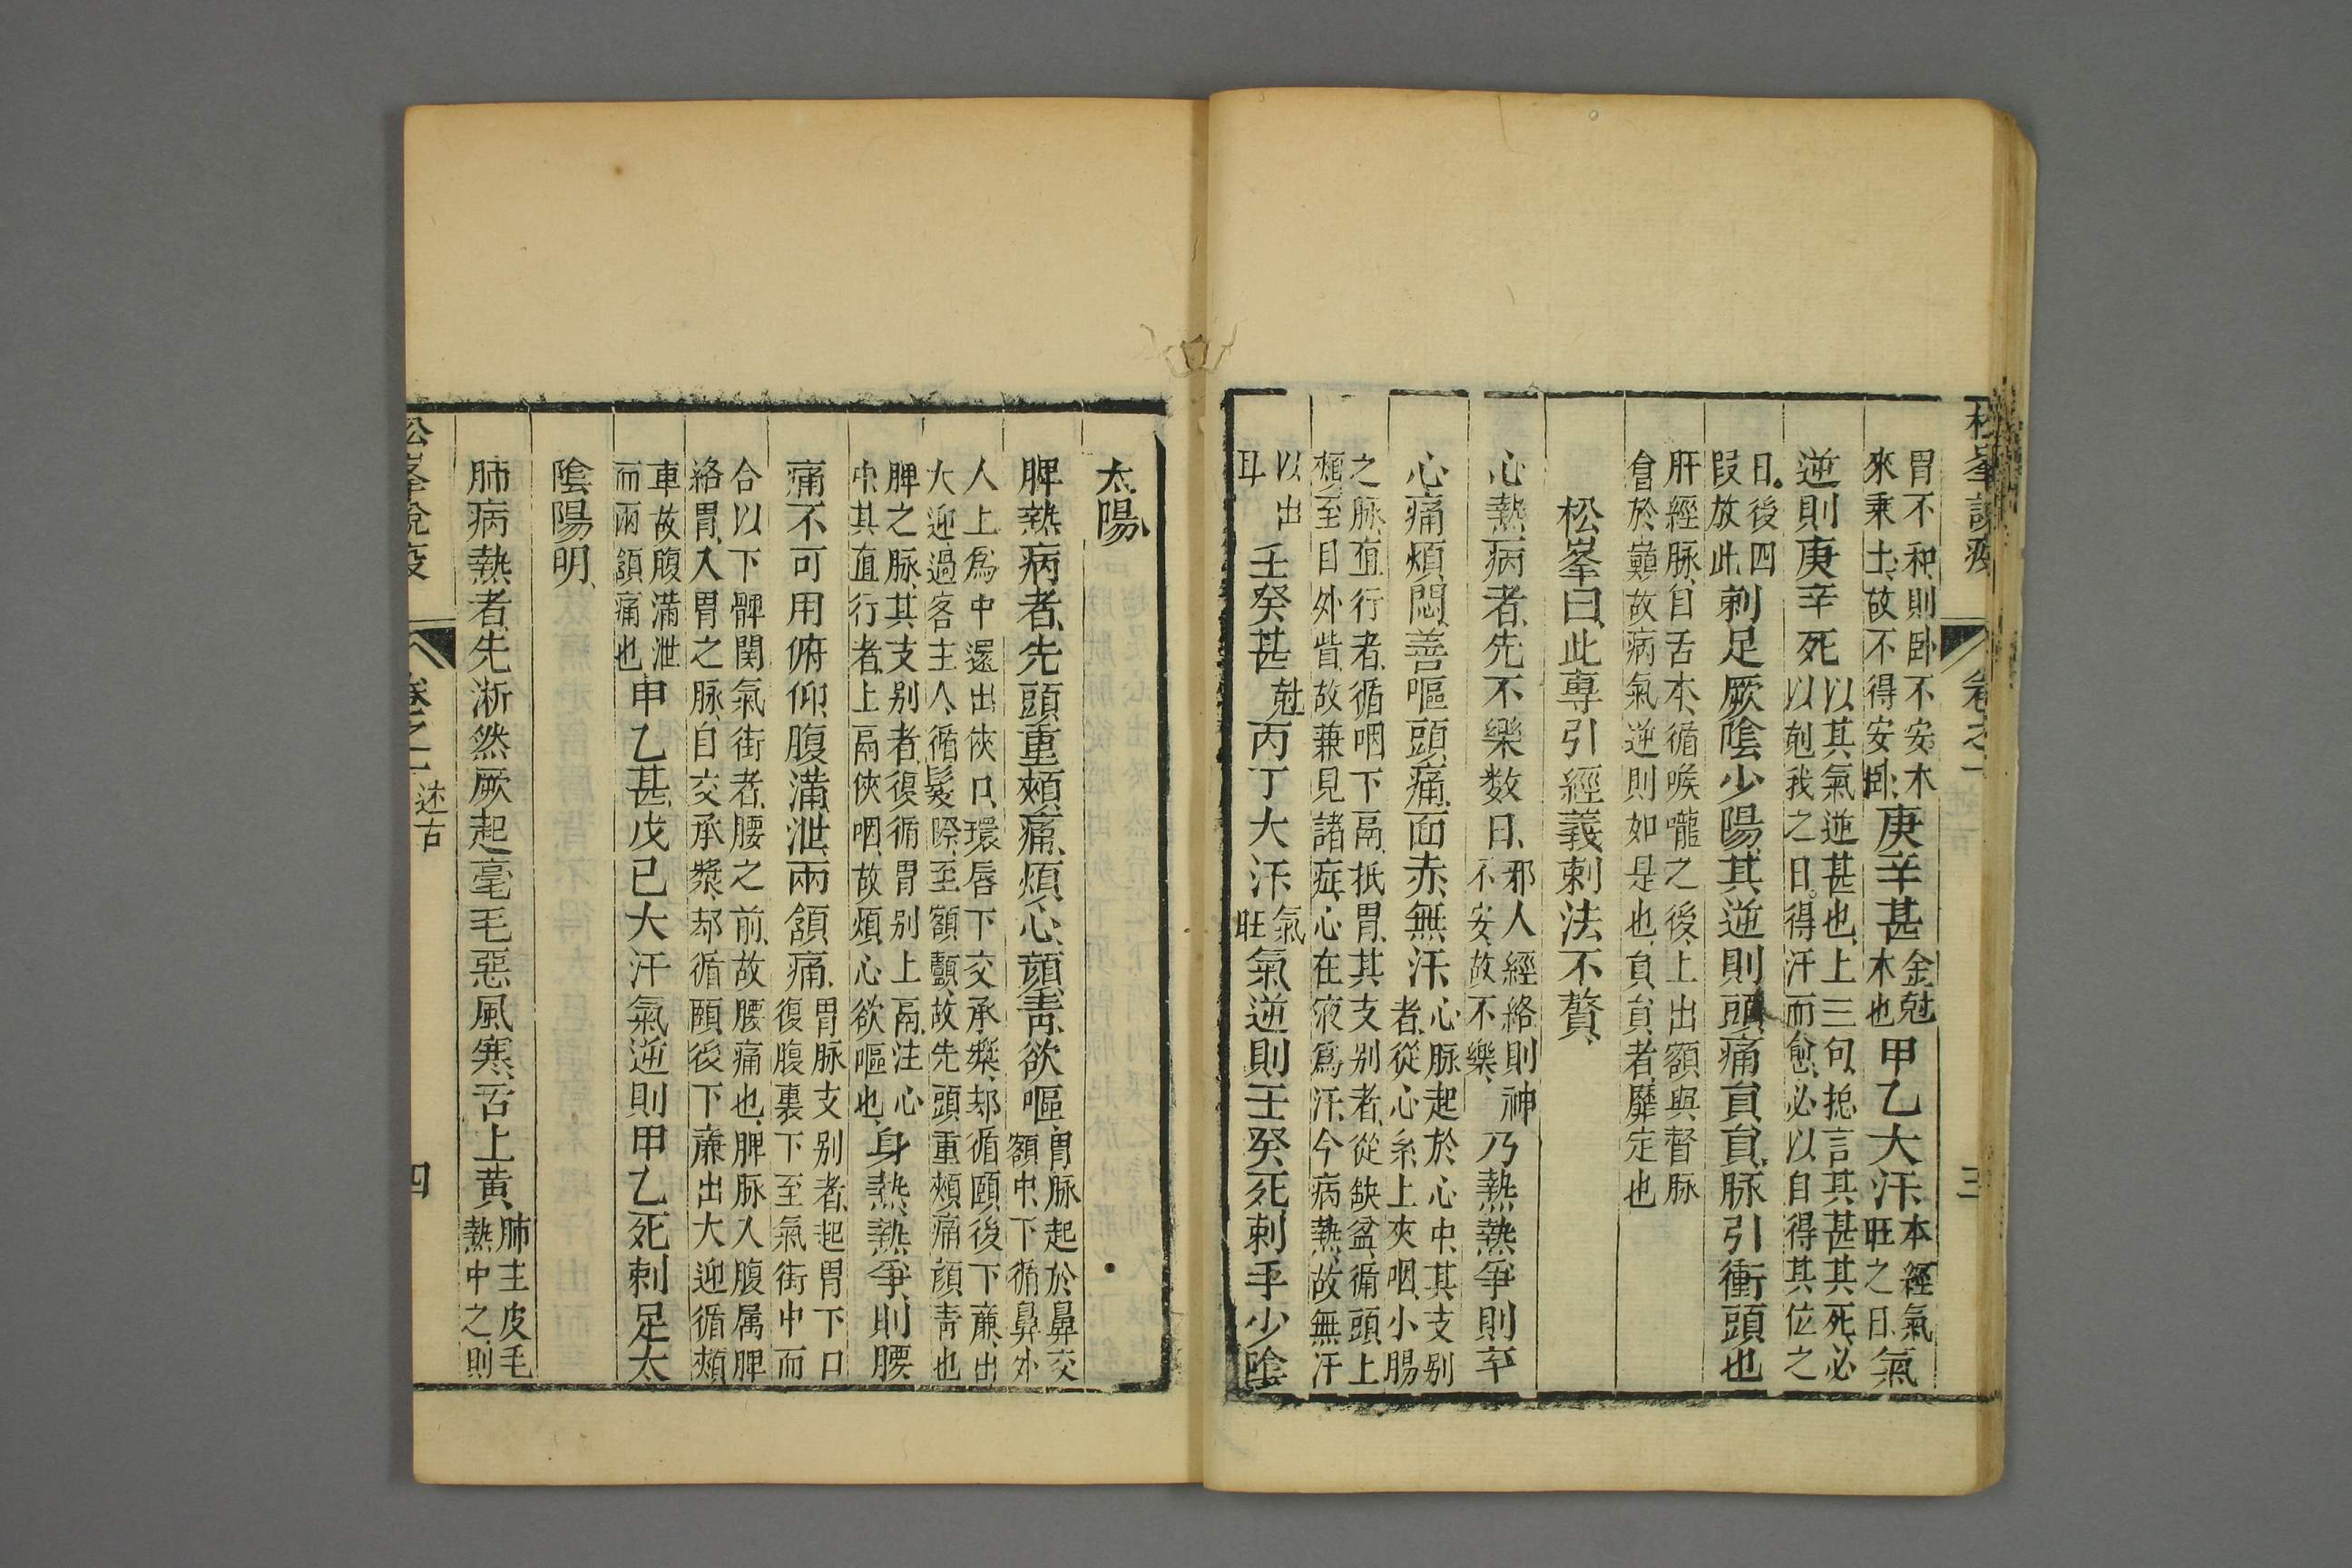 松峯說疫 卷之一 三
胃不和則卧不安木
來乘土故不得安卧庚辛甚金尅木也甲乙大汗本經氣旺之日氣
逆則庚辛死以其氣逆甚也上三句揔言其甚其死必以尅我之日得汗而愈必以自得其位之
日後四段放此刺足厥陰少陽其逆則頭痛員員脉引衝頭也
肝經脉自舌本循喉嚨之後上出額與督脉
會於巔故病氣逆則如是也員員者靡定也
松峯曰此專引經義刺法不贅
心熱病者先不樂数日邪人經絡則神不安故不樂乃熱熱爭則卒
心痛煩悶善嘔頭痛面赤無汗心脉起於心中其支别者從心系上夾咽小腸
之脉直行者循咽下鬲抵胃其支别者從缺盆循頭上
頰至目外眥故兼見諸症心在液爲汗今病熱故無汗
以出耳壬癸甚尅丙丁大汗氣旺氣逆則壬癸死刺手少陰
太陽
脾熱病者先頭重頰痛煩心顔靑欲嘔胃脉起於鼻交額中下循鼻外
人上爲中還出俠口環唇下交承漿却循頤後下亷出
大迎過客主人循髮際至額顱故先頭重頰痛顔靑也
脾之脉其支别者復循胃别上鬲注心
中其直行者上鬲俠咽故煩心欲嘔也身熱熱爭則腰
痛不可用俯仰腹滿泄兩頷痛胃脉支别者起胃下口復腹裏下至氣街中而
合以下髀関氣街者腰之前故腰痛也脾脉入腹属脾
絡胃入胃之脉自交承漿却循頤後下亷出大迎循頰
車故腹滿泄而兩頷痛也甲乙甚戊己大汗氣逆則甲乙死刺足太
陰陽明
肺病熱者先淅然厥起毫毛惡風寒舌上黄肺主皮毛熱中之則
松峯說疫 卷之一 述古 四